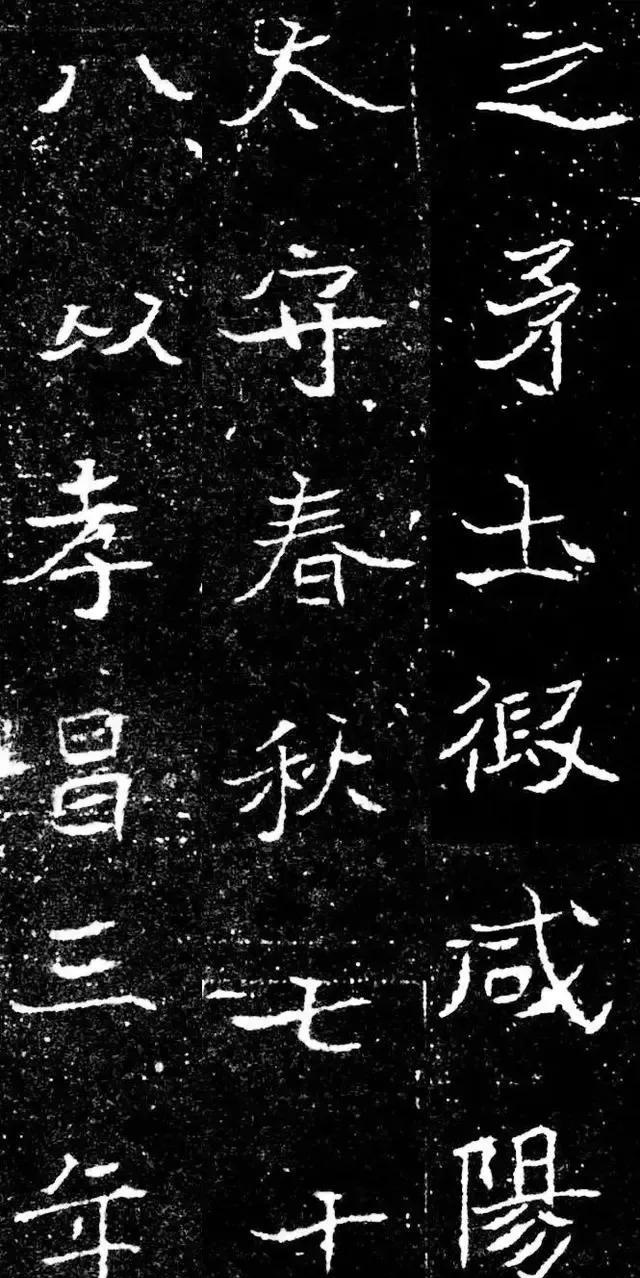 之矛土假咸陽
太守春秋七十
八以孝昌三年